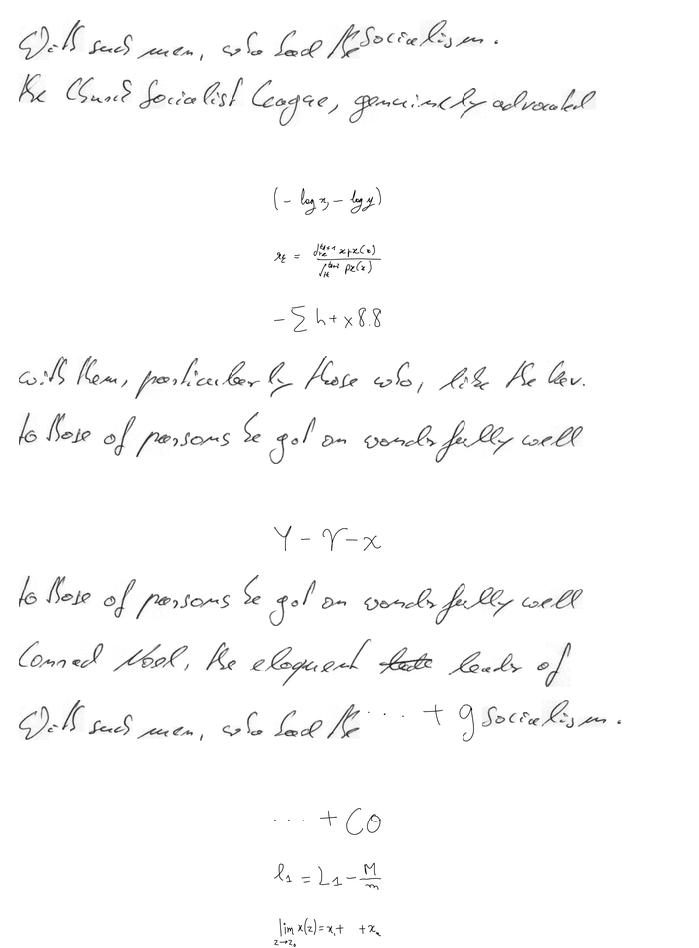 With such men, who had the Socialism.
the Church Socialist League, genuinely advocated
(- log x, - log y)
x_t = \frac{\int_{t_k}^{t_{k+1}} x p_x(x)}{\int_{t_k}^{t_{k+1}} p_x(x)}
- ∑ h + x 8.8
with them, particularly those who, like the Rev.
to those of parsons he got on wonderfully well
Y - γ - x
to those of parsons he got on wonderfully well
Conrad Noel, the eloquent leader of
With such men, who had the ... + g Socialism.
... + C0
l_1 = L_1 - \frac{M}{m}
\lim_{z→z_0} x(z) = x_1 + + x_n